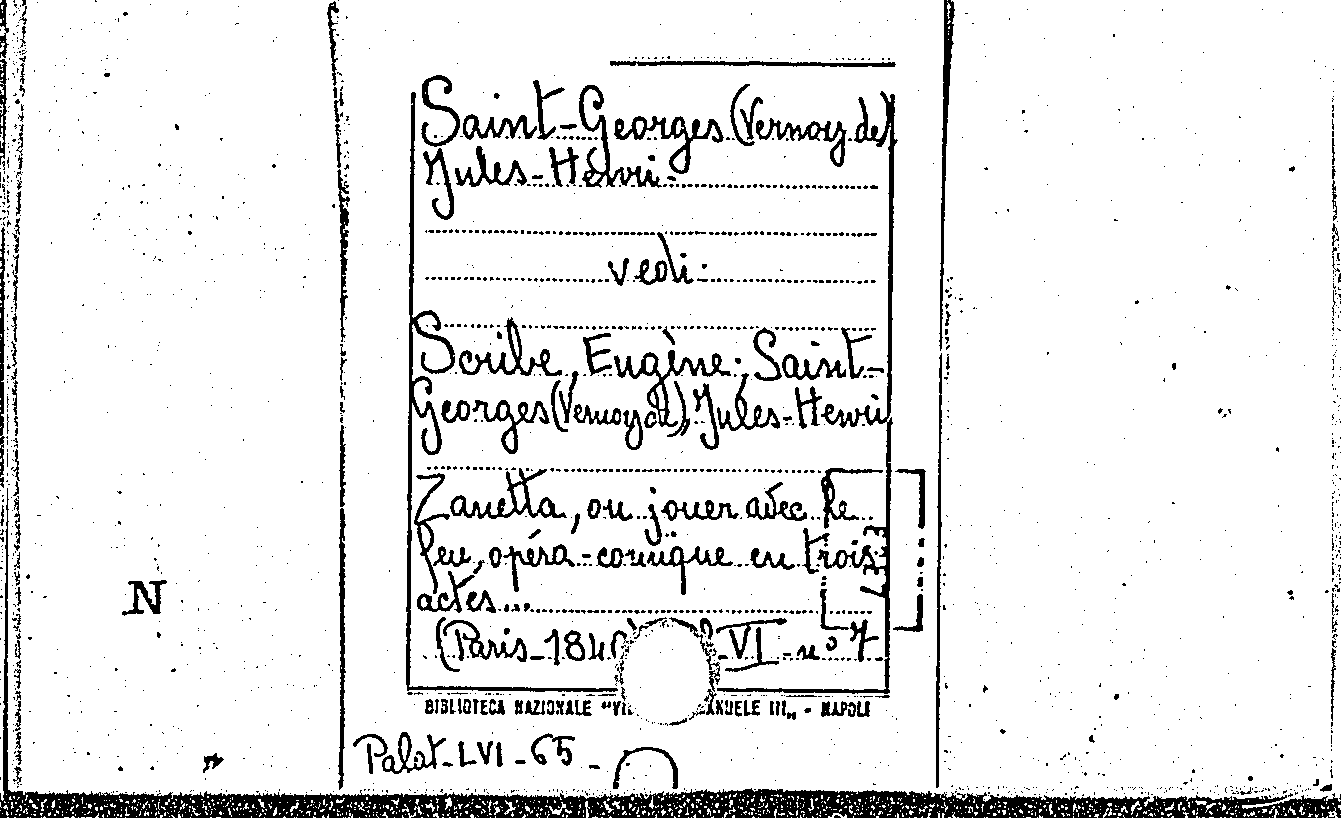 Saint-Georges (Vernoy de)
Jules-Henri-
vedi:
Scribe, Eugène; Saint-
Georges (Vernoy de), Jules-Henri
Zanetta, ou jouer avec le
feu, opéra-comique en trois
actes...
(Paris-1840 VI-nº 7
BIBLIOTECA NAZIONALE - NAPOLI
Palat-LVI-65-
N